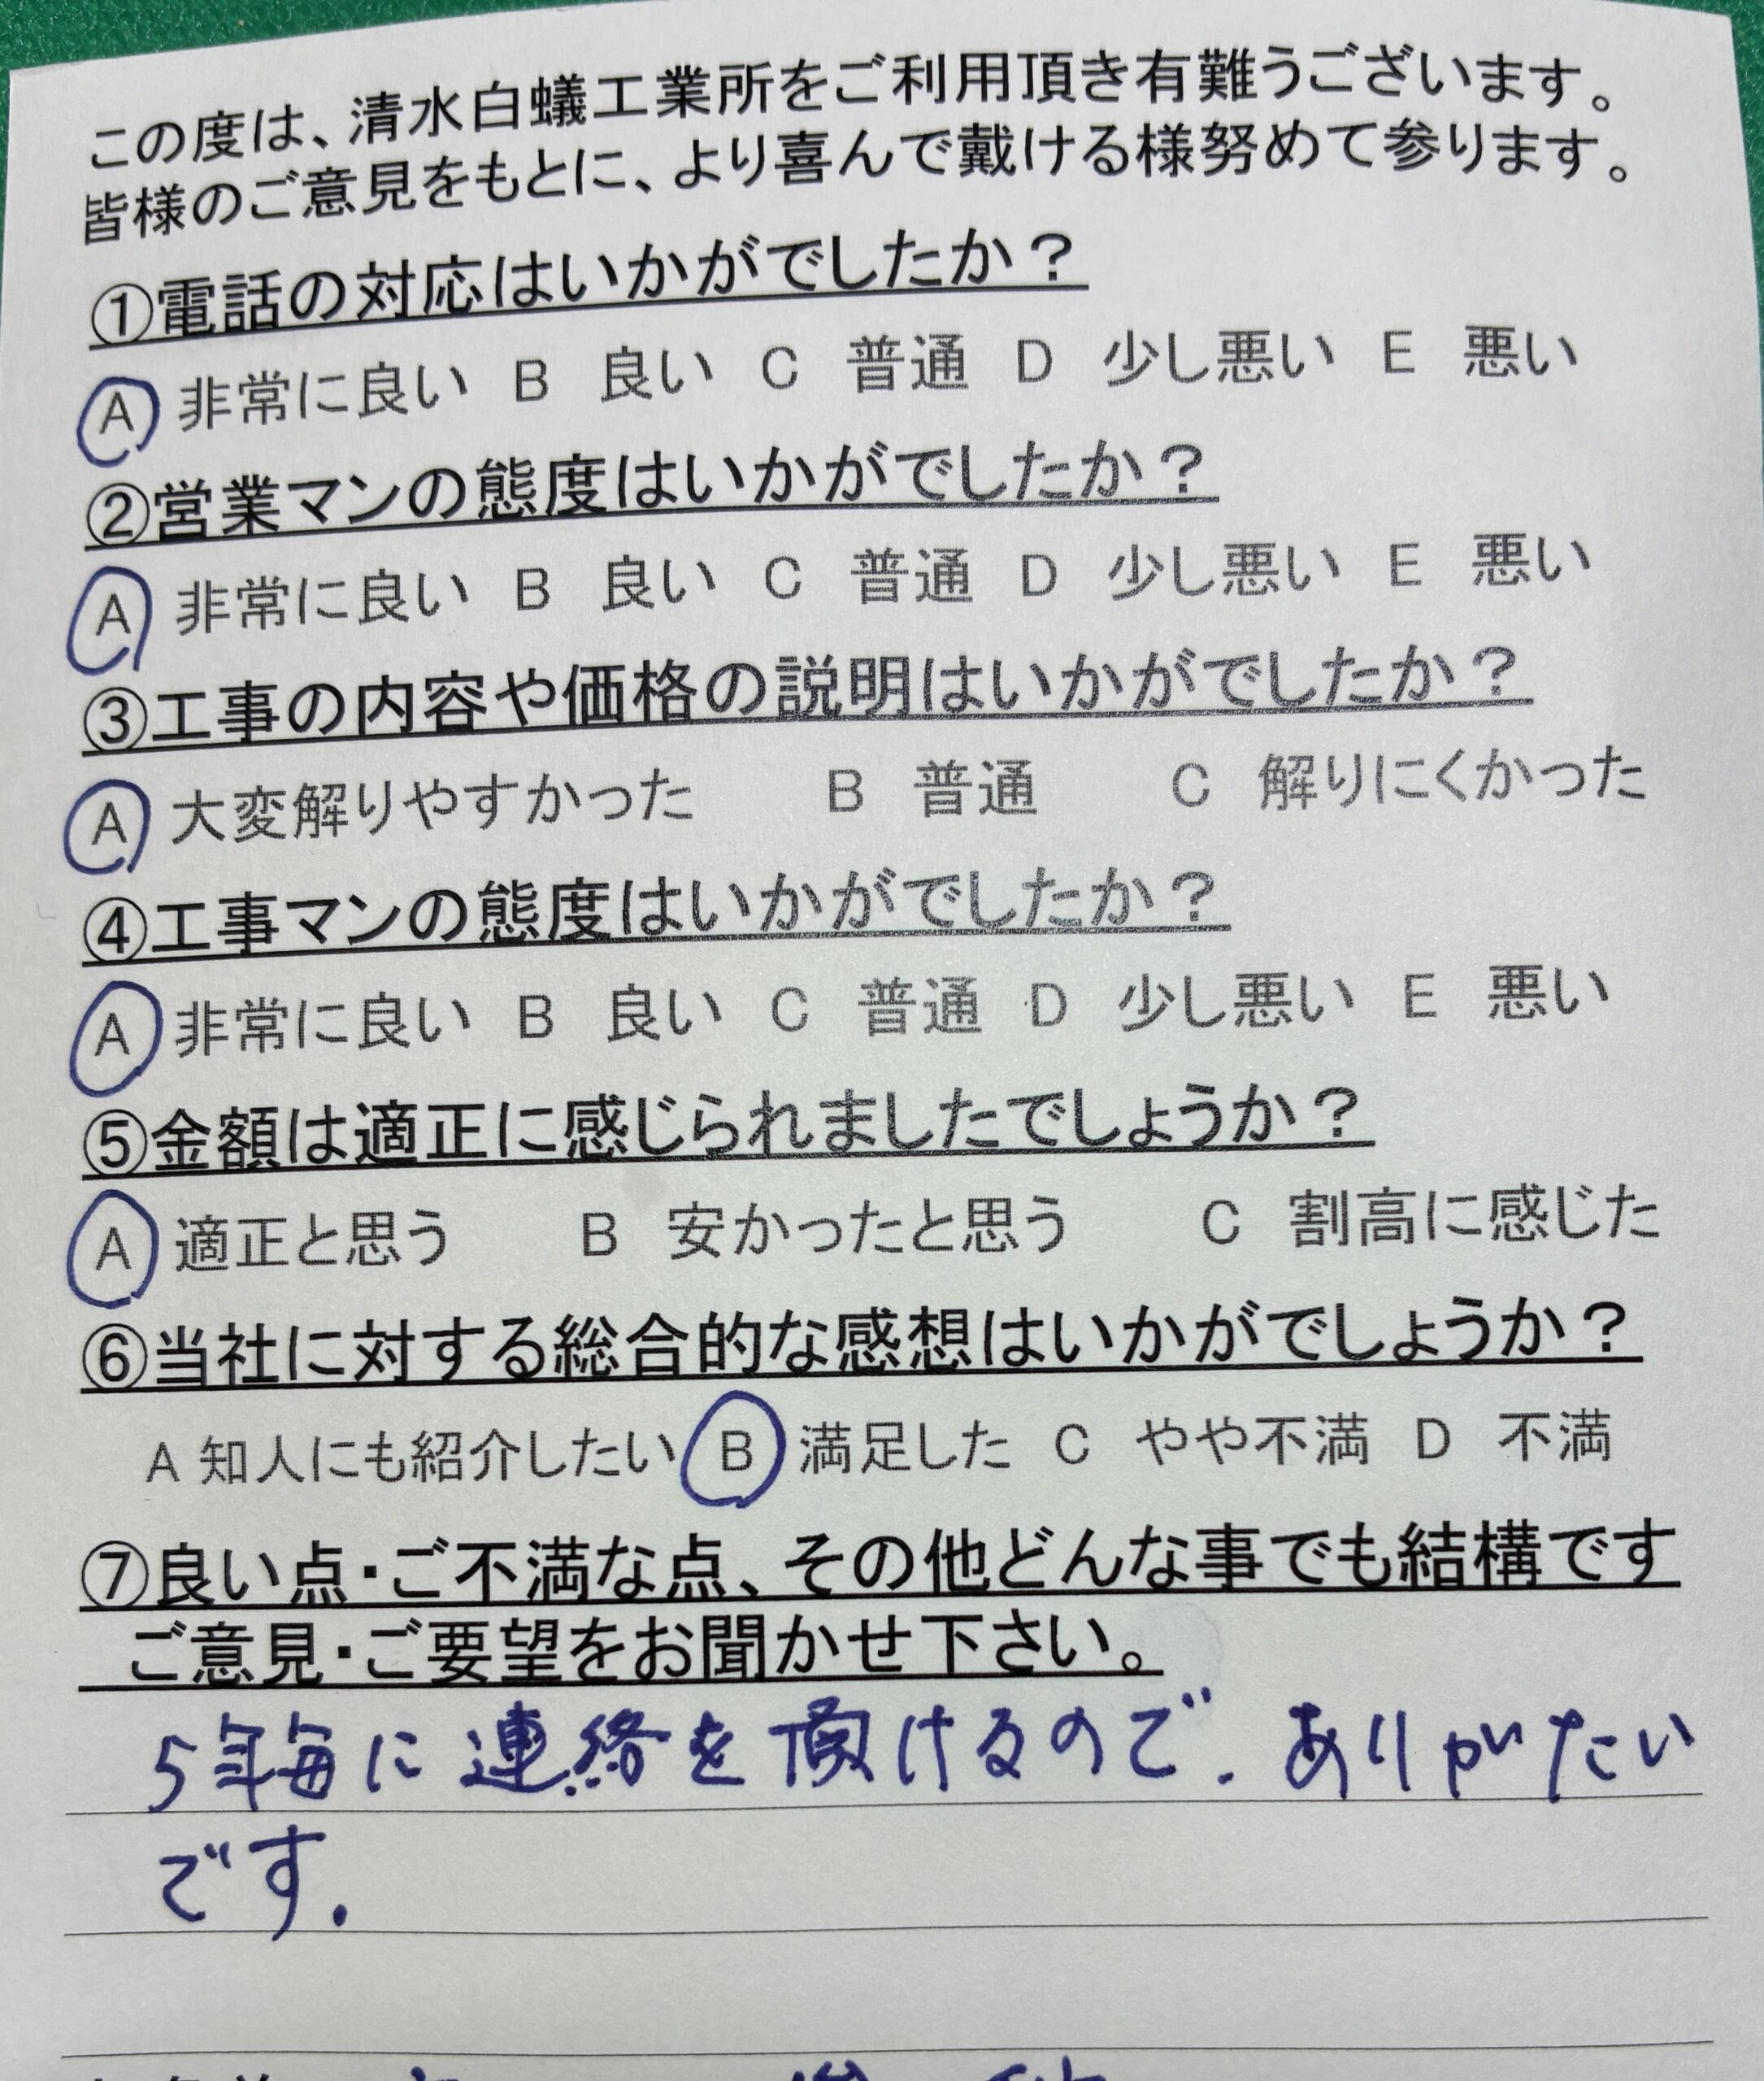 この度は、清水白蟻工業所をご利用頂き有難うございます。
皆様のご意見をもとに、より喜んで戴ける様努めて参ります。
①電話の対応はいかがでしたか？
A 非常に良い B 良い C 普通 D 少し悪い E 悪い
②営業マンの態度はいかがでしたか？
A 非常に良い B 良い C 普通 D 少し悪い E 悪い
③工事の内容や価格の説明はいかがでしたか？
A 大変解りやすかった B 普通 C 解りにくかった
④工事マンの態度はいかがでしたか？
A 非常に良い B 良い C 普通 D 少し悪い E 悪い
⑤金額は適正に感じられましたでしょうか？
A 適正と思う B 安かったと思う C 割高に感じた
⑥当社に対する総合的な感想はいかがでしょうか？
A 知人にも紹介したい B 満足した C やや不満 D 不満
⑦良い点・ご不満な点、その他どんな事でも結構です
ご意見・ご要望をお聞かせ下さい。
5年毎に連絡を頂けるので、ありがたい
です.